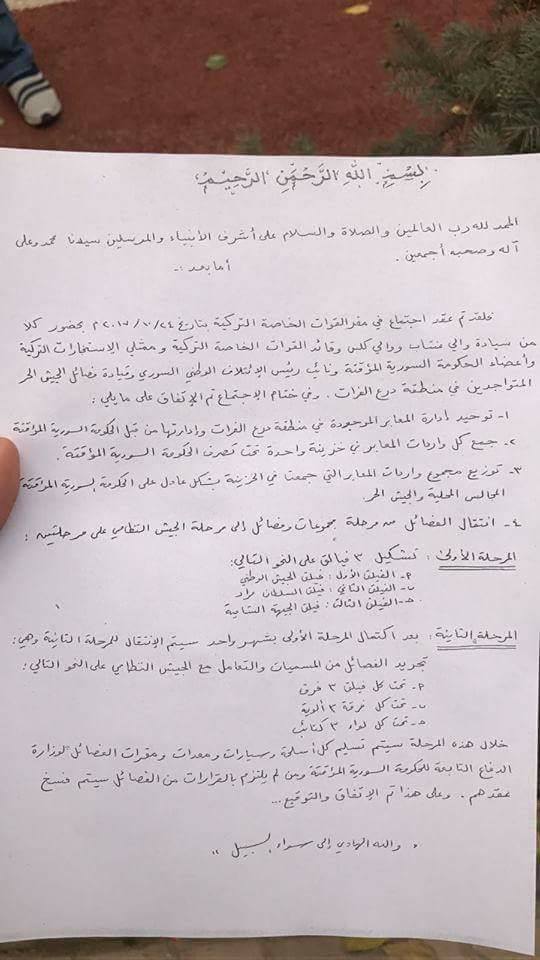 بِسْمِ اللهِ الرَّحْمَنِ الرَّحِيْمِ
الحمد لله رب العالمين والصلاة والسلام على أشرف الأنبياء والمرسلين سيدنا محمد وعلى
آله وصحبه أجمعين .
أما بعد :-
فلقد تم عقد اجتماع في مقر القوات الخاصة التركية بتاريخ ٢٤/١٠/٢٠١٧ م بحضور كلا
من سيادة والي عنتاب ووالي كلس وقائد القوات الخاصة التركية وممثلي الاستخبارات التركية
وأعضاء الحكومة السورية المؤقتة ونائب رئيس الإئتلاف الوطني السوري وقيادة فصائل الجيش الحر
المتواجدين في منطقة درع الفرات . وفي ختام الاجتماع تم الإتفاق على ما يلي :
١- توحيد إدارة المعابر الموجودة في منطقة درع الفرات وإدارتها من قبل الحكومة السورية المؤقتة
٢- جمع كل واردات المعابر في خزينة واحدة تحت تصرف الحكومة السورية المؤقتة .
٣- توزيع مجموع واردات المعابر التي جمعت في الخزينة بشكل عادل على الحكومة السورية المؤقتة
المجالس المحلية والجيش الحر .
٤- انتقال الفصائل من مرحلة مجموعات وفصائل إلى مرحلة الجيش النظامي على مرحلتين :
المرحلة الأولى : تشكيل ٣ فيالق على النحو التالي :
أ- الفيلق الأول : فيلق الجيش الوطني
ب- الفيلق الثاني : فيلق السلطان مراد
ج- الفيلق الثالث : فيلق الجبهة الشامية
المرحلة الثانية : بعد اكتمال المرحلة الأولى بشهر واحد سيتم الإنتقال للمرحلة الثانية وهي :
تجريد الفصائل من المسميات والتعامل مع الجيش النظامي على النحو التالي :
أ- تحت كل فيلق ٣ فرق
ب- تحت كل فرقة ٣ ألوية
ج- تحت كل لواء ٣ كتائب
خلال هذه المرحلة سيتم تسليم كل أسلحة وسيارات ومعدات ومقرات الفصائل لوزارة
الدفاع التابعة للحكومة السورية المؤقتة ومن لم يلتزم بالقرارات من الفصائل سيتم فسخ
عقدهم . وعلى هذا تم الإتفاق والتوقيع ...
" والله الهادي إلى سواء السبيل "